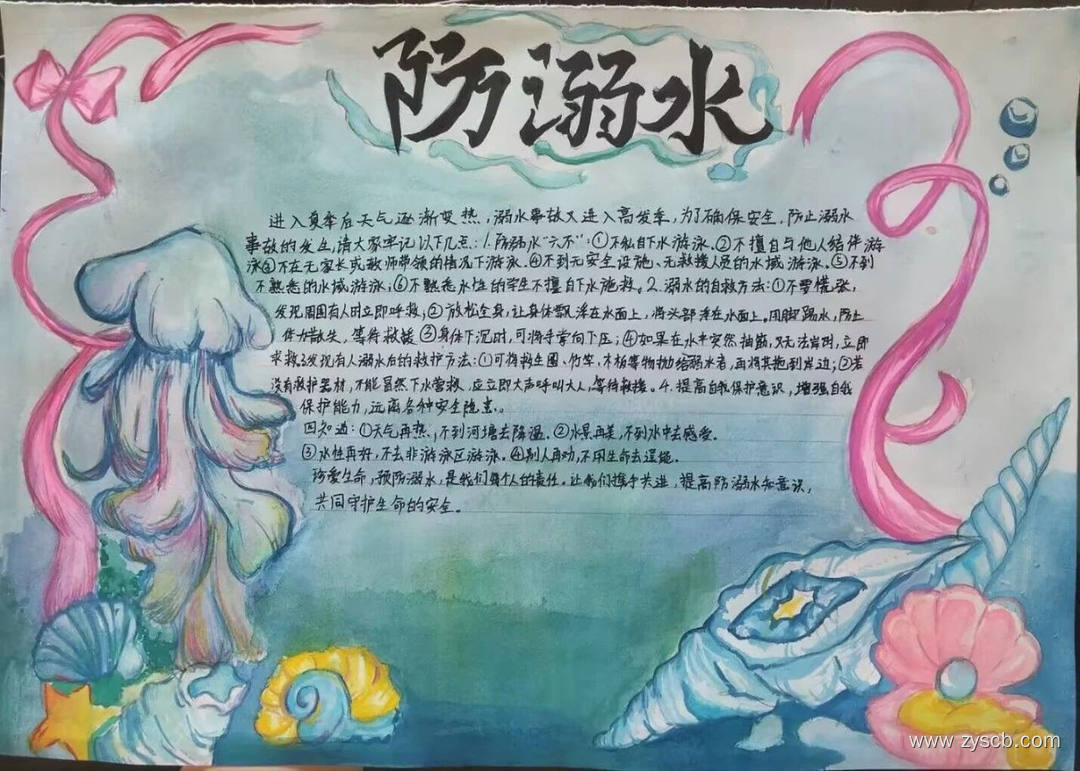 防溺水
进入夏季后天气逐渐变热，溺水事故又进入高发季，为了确保安全，防止溺水
事故的发生，请大家牢记以下几点：1.防溺水“六不”：①不私自下水游泳.②不擅自与他人结伴游
泳③不在无家长或教师带领的情况下游泳.④不到无安全设施、无救援人员的水域游泳.⑤不到
不熟悉的水域游泳；⑥不熟悉水性的学生不擅自下水施救。2.溺水的自救方法：①不要慌张，
发现周围有人时立即呼救；②放松全身，让身体飘浮在水面上，将头部浮在水面上。用脚踢水，防止
体力散失，等待救援③身体下沉时，可将手掌向下压；④如果在水中突然抽筋，又无法岸，立即
求救3.发现有人溺水后的救护方法：①可将救生圈、竹竿，木板等物抛给溺水者，再将其拖到岸边；②若
没有救护器材，不能冒然下水营救，应立即大声呼叫大人，等待救援。4.提高自我保护意识，增强自我
保护能力，远离各种安全隐患。
四知道：①天气再热，不到河塘去降温。②水景再美，不到水中去感受。
③水性再好，不去非游泳区游泳。④别人再劝，不用生命去逞能。
珍爱生命，预防溺水，是我们每个人的责任。让我们携手共进，提高防溺水意识，
共同守护生命的安全。
www.zyscb.com